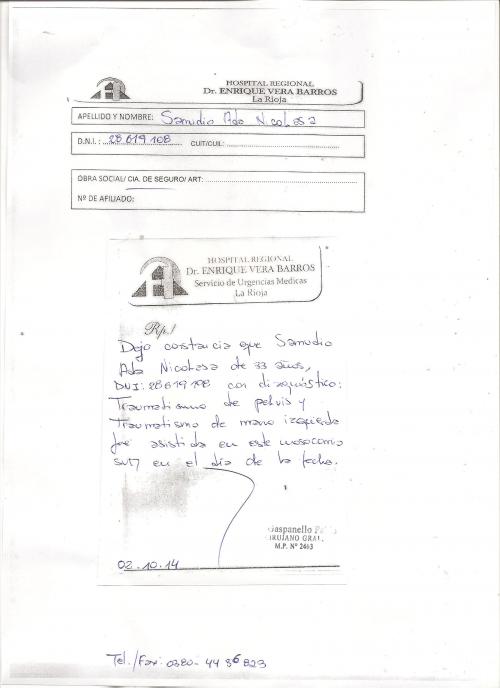 HOSPITAL REGIONAL
Dr. ENRIQUE VERA BARROS
La Rioja
APELLIDO Y NOMBRE: Samudio Ada Nicolasa
D.N.I. : 28 619 108 CUIT/CUIL:
OBRA SOCIAL/ CIA. DE SEGURO/ ART:
Nº DE AFILIADO:
HOSPITAL REGIONAL
Dr. ENRIQUE VERA BARROS
Servicio de Urgencias Medicas
La Rioja
Rp./
Dejo constancia que Samudio
Ada Nicolasa de 33 años,
DNI: 28 619 108 con diagnóstico:
Traumatismo de pelvis y
Traumatismo de mano izquierda
fue asistida en este nosocomio
en el día de la fecha.
Gaspanello
CIRUJANO GRAL.
M.P. Nº 2463
02.10.14
Tel./Fax: 0380- 44 36 823